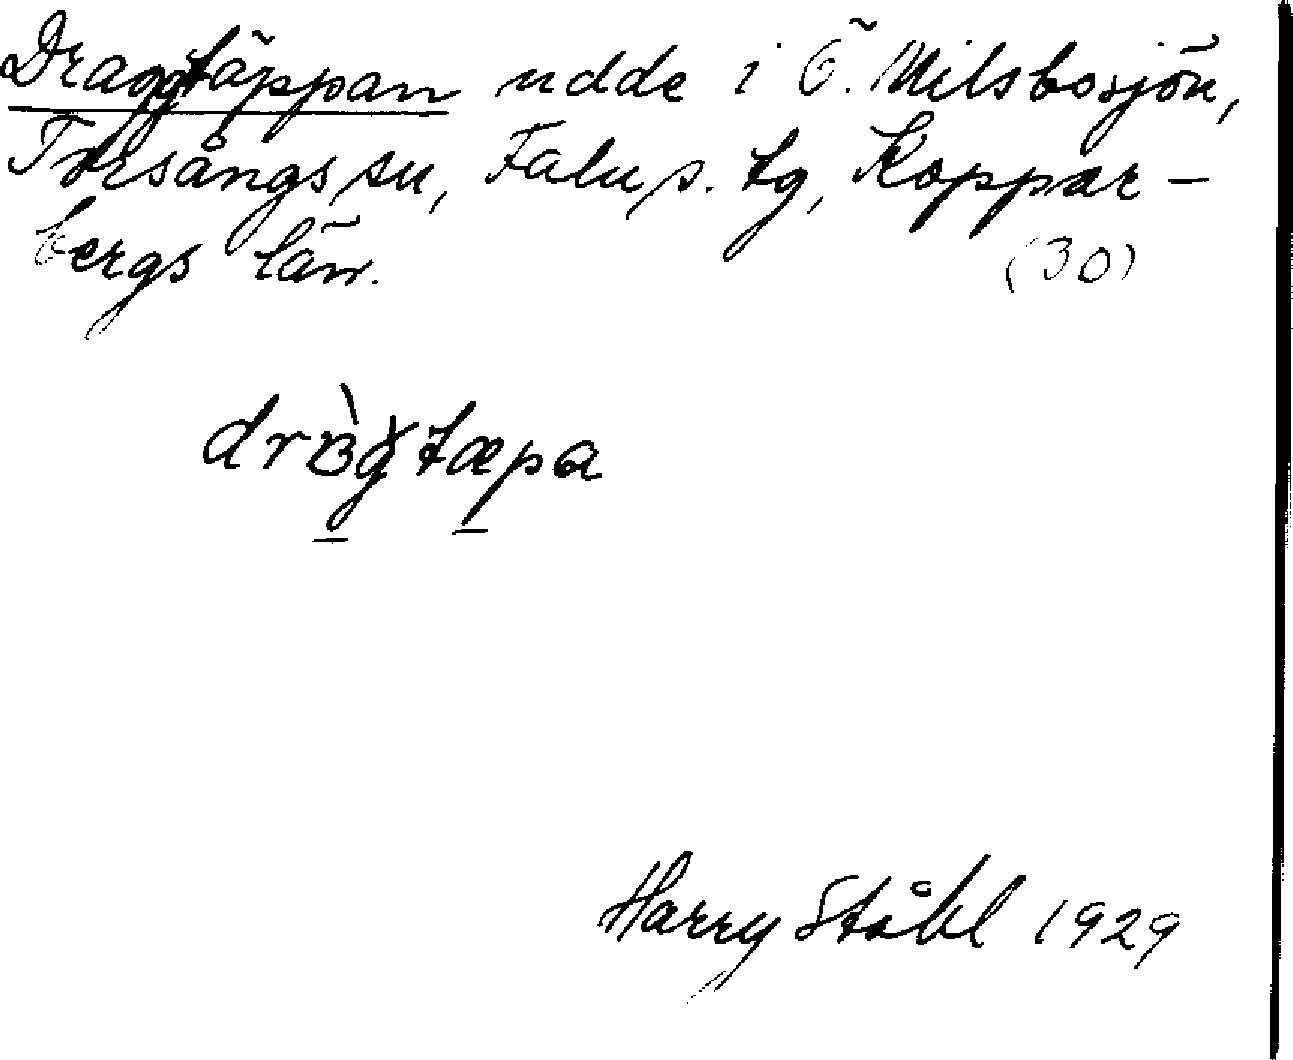 Dragtäppan udde i Ö. Milsbosjön,
Torsångs sn, Falu s. tg, Koppar-
bergs län.
(30)
Harry Ståhl 1929